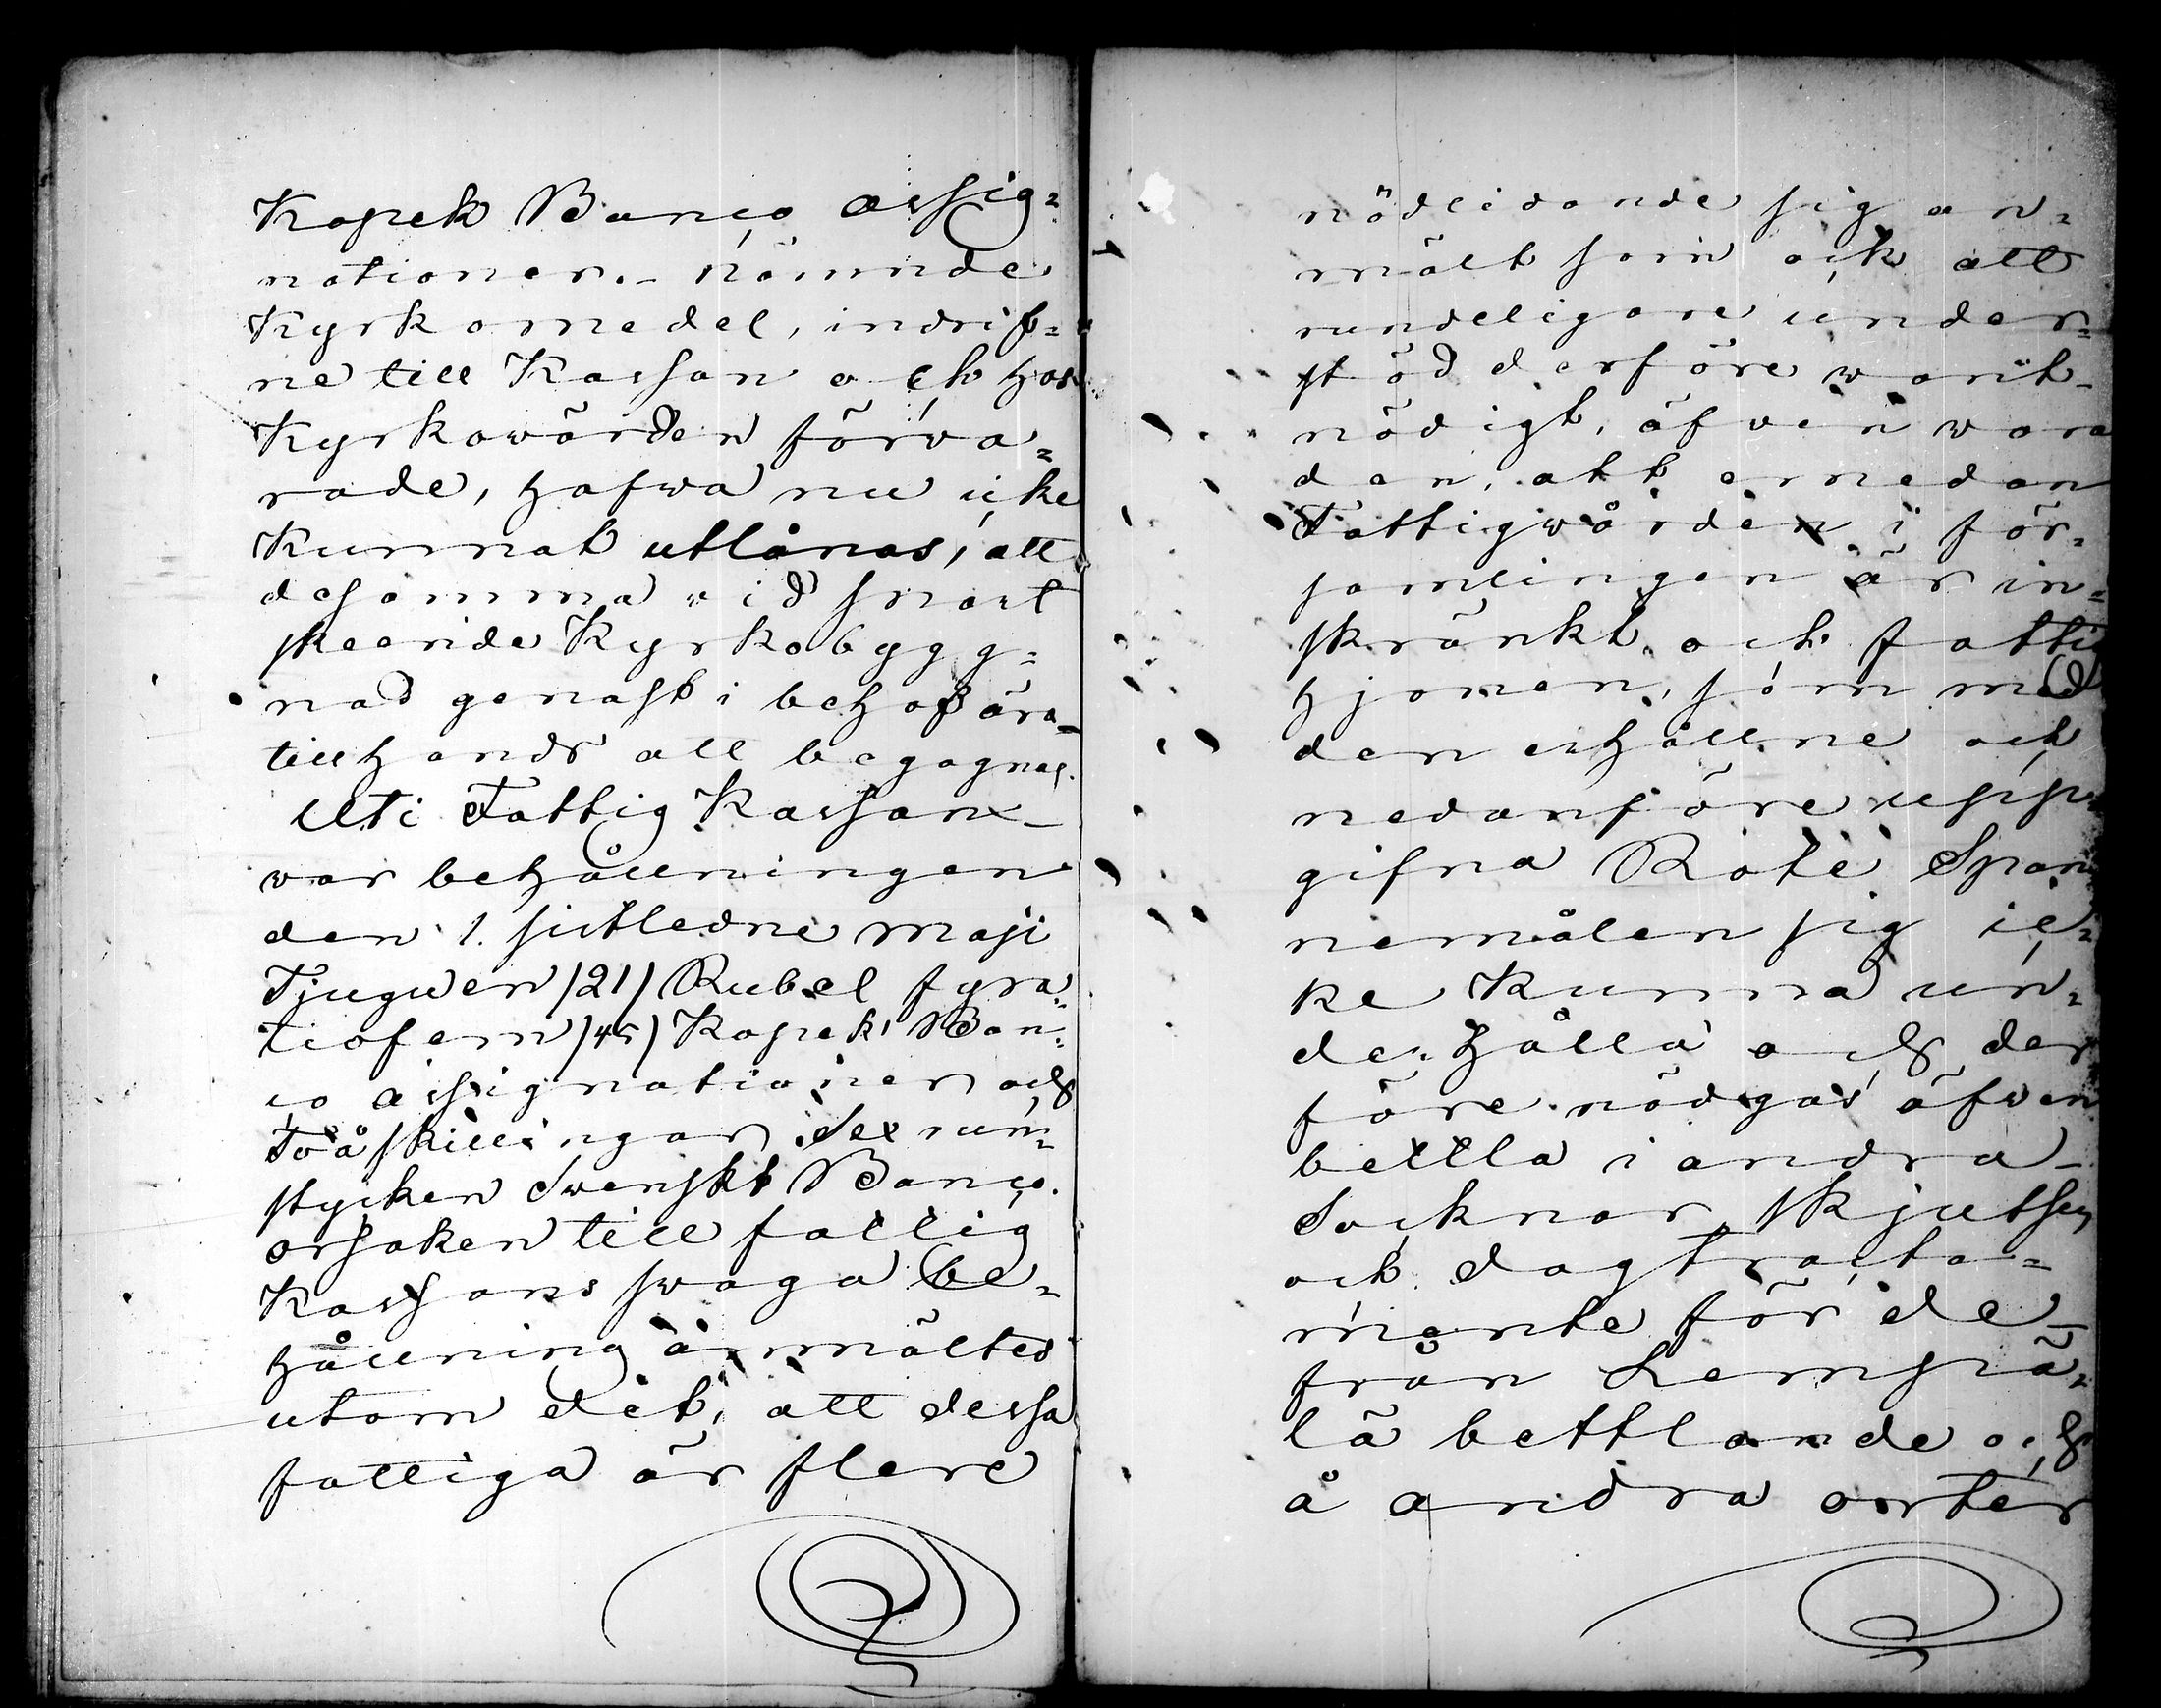 Kopek Banco assig-
nationer. Nämnde
Kyrkomedel, indrif-
ne till Kassan och hos
Kyrkowärden förva-
rade, hafwa nu icke
Kunnat utlånas, att
desamma vid snart
skeende Kyrkobygg-
nad genast i behof ära
tillhands att begagnas.
Uti Fattig Kassan
war behållningen
den 1. sistledne maji
Tjuguen /21/ Rubel fyra-
tiofem /45/ Kopek Ban-
co assignationer och
Två skillingar sex run-
stycken Swenskt Banco.
orsaken till fattig
Kassans swaga be-
hållning anmältes
utom det, att dessa
fattiga är flere
nödlidande sig an-
mält som ock att
rundeligare under-
stöd derföre warit
nödigt, äfven wara
den, att emedan
Fattigwården i för-
samlingen är in-
skränkt och fatti
hjonen, som med
den erhållne och
nedanföre upp-
gifna Rote Span-
nemålen sig ic-
ke Kunna un-
derhålla och der
före nödgas äfwen
bettla i andra
Socknar, skjutsen
och dagtracta-
mente för de
från Lempä-
lä bettlande och
å andra orter